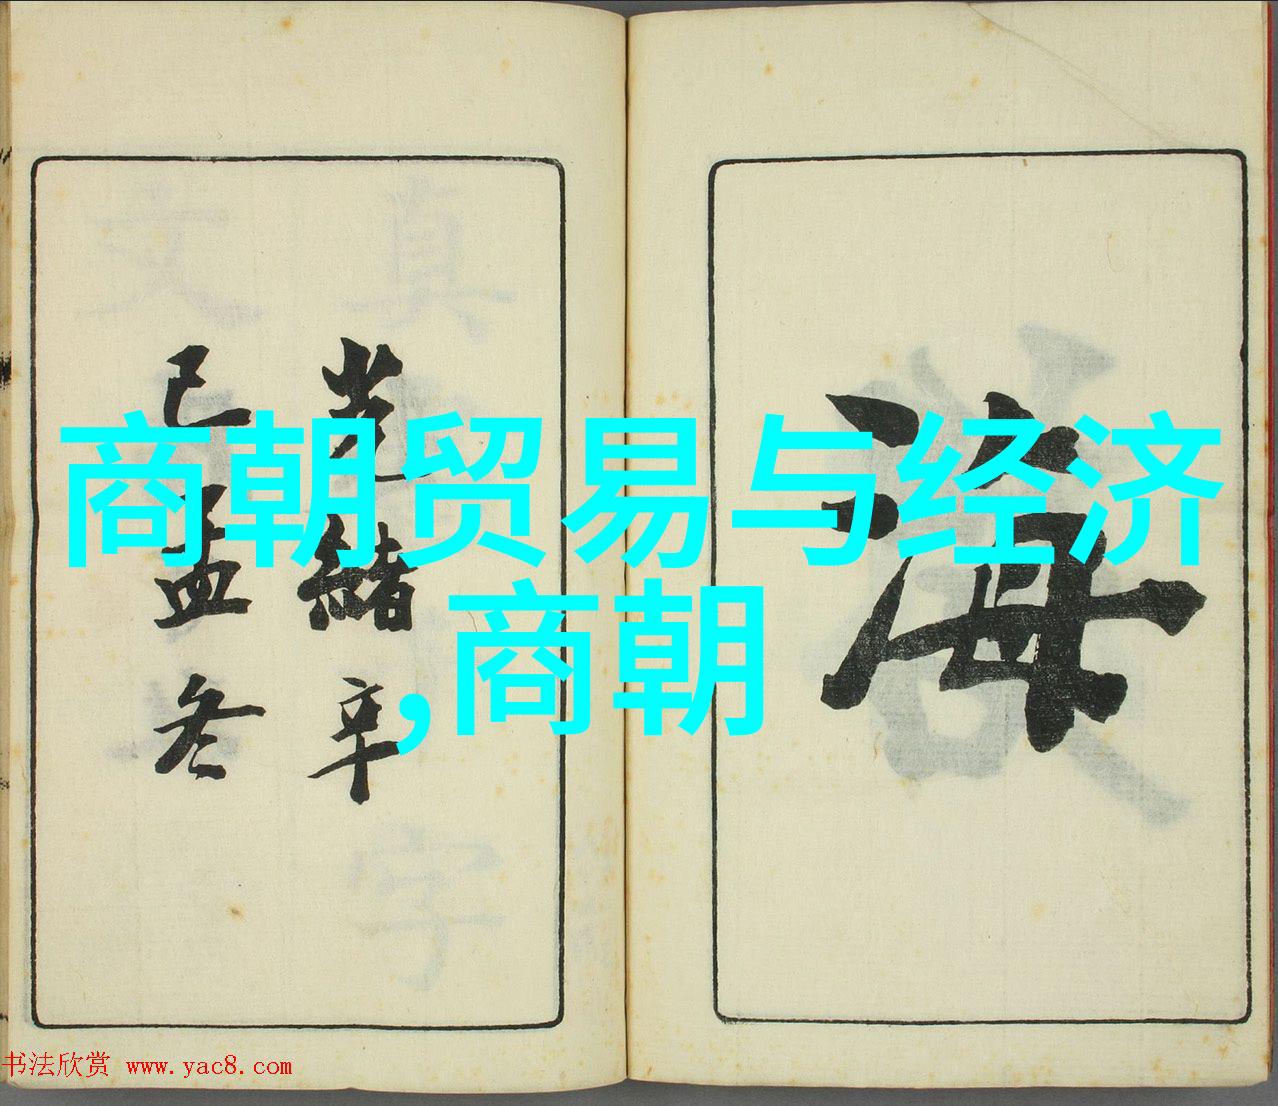 商朝贸易与经济
,商朝
海
光緒辛
巳孟冬
书法欣赏 www.yac8.com